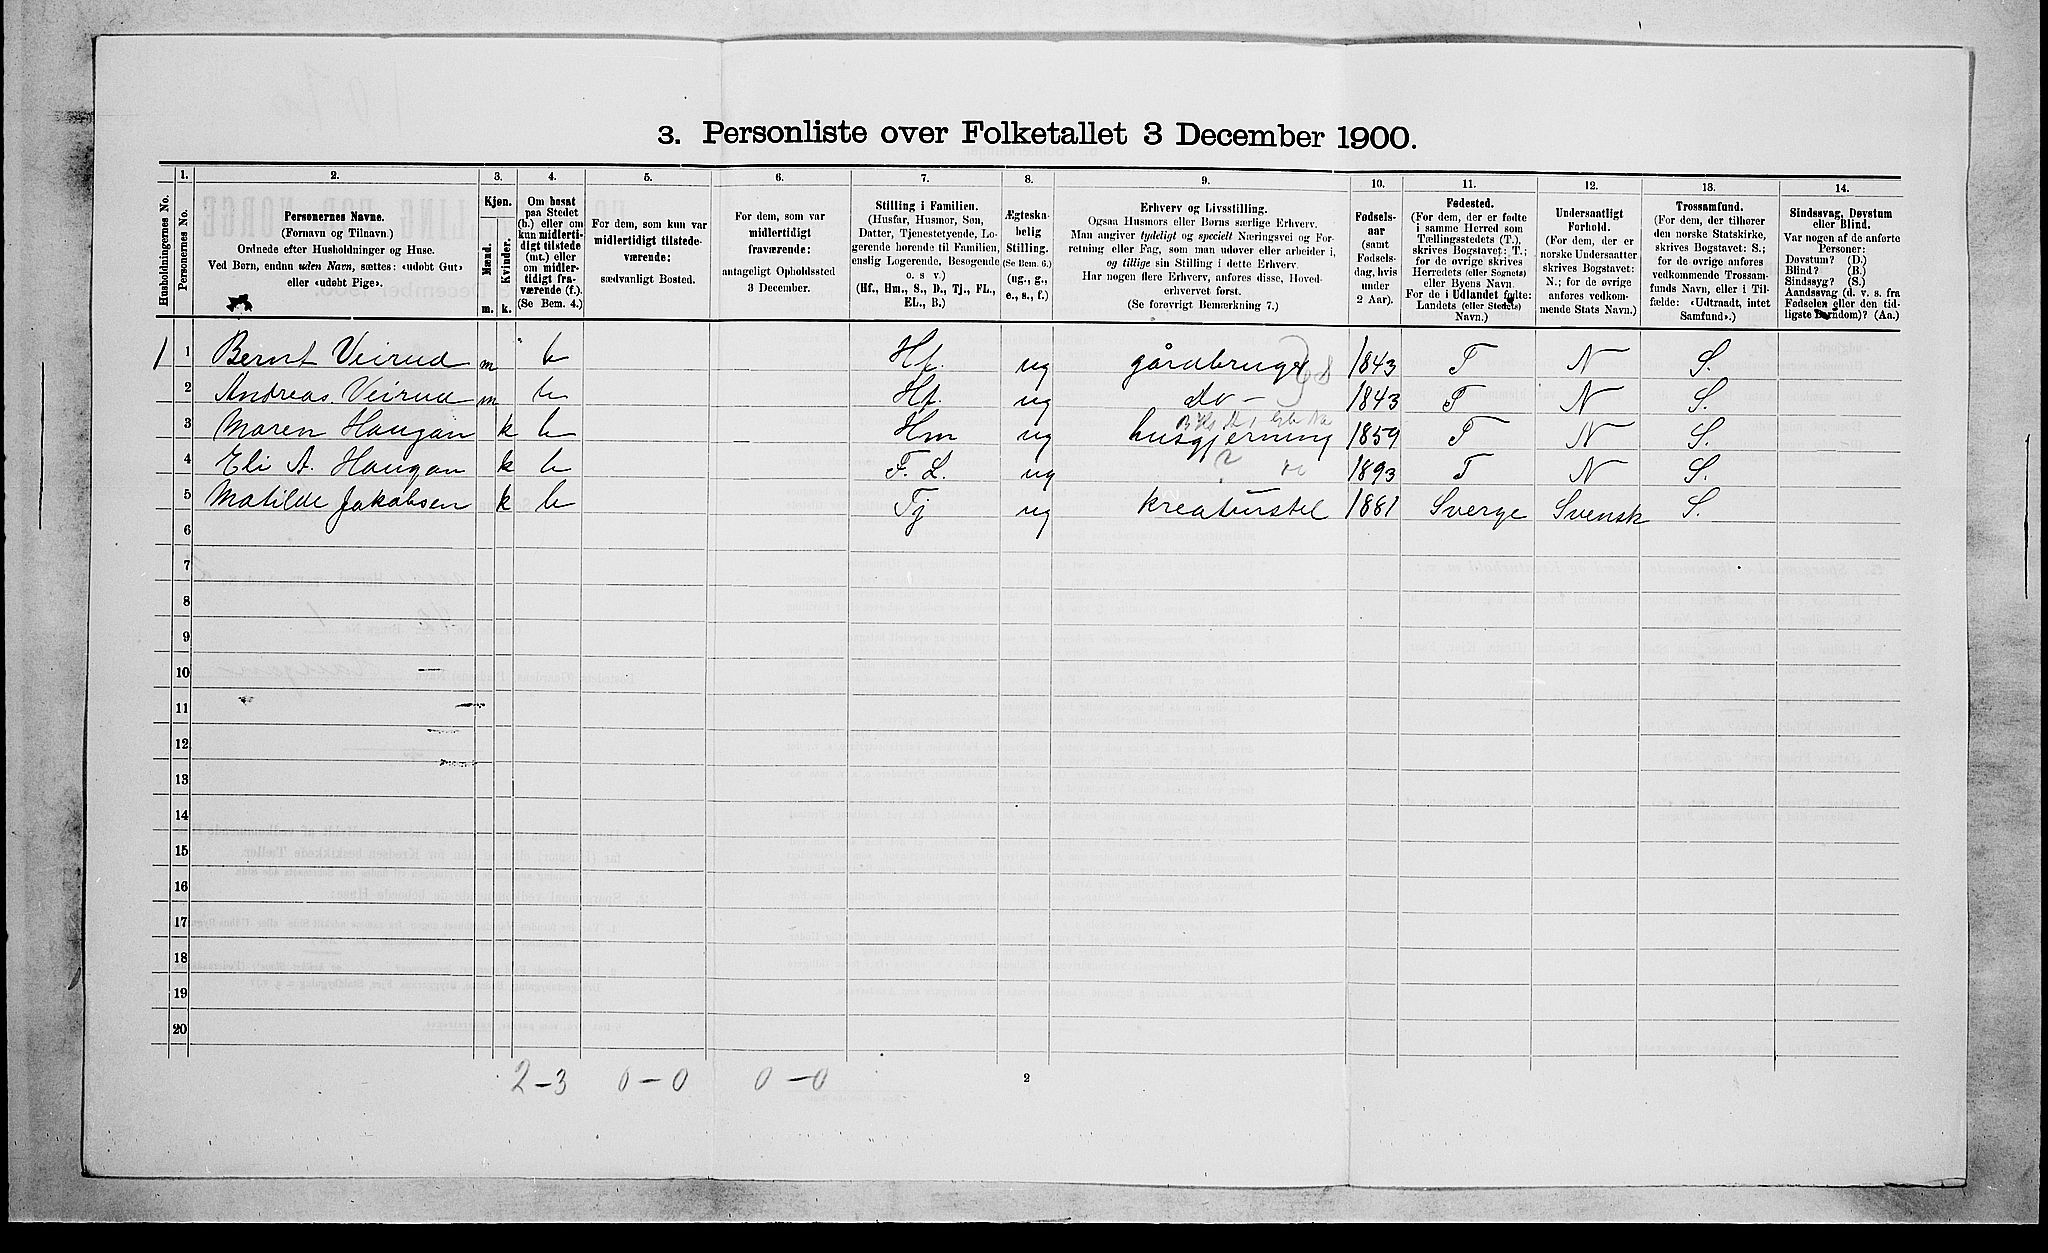 3. Personliste over Folketallet 3 December 1900.
Husholdningernes No.
1.
Personernes No.
2.
Personernes Navne.
(Fornavn og Tilnavn.)
Ordnede efter Husholdninger og Huse.
Ved Børn, endnu uden Navn, sættes: «udøbt Gut»
eller «udøbt Pige».
3.
Kjøn.
Mænd.
Kvinder.
m. k.
4.
Om bosat
paa Stedet
(b.) eller om
kun midlerti-
digt tilstede
(mt.) eller
om midler-
tidigt fra-
værende (f.).
(Se Bem. 4.)
5.
For dem, som kun var
midlertidigt tilstede-
værende:
sædvanligt Bosted.
6.
For dem, som var
midlertidigt
fraværende:
antageligt Opholdssted
3 December.
7.
Stilling i Familien.
(Husfar, Husmor, Søn,
Datter, Tjenestetyende, Lo-
gerende hørende til Familien,
enslig Logerende, Besøgende
o. s v.)
(Hf., Hm., S., D., Tj., FL.,
EL., B.)
8.
Ægteska-
belig
Stilling.
(Se Bem. 6.)
(ug., g.,
e., s., f.)
9.
Erhverv og Livsstilling.
Ogsaa Husmors eller Børns særlige Erhverv.
Man angiver tydeligt og specielt Næringsvei og For-
retning eller Fag, som man udøver eller arbeider i,
og tillige sin Stilling i dette Erhverv.
Har nogen flere Erhverv, anføres disse, Hoved-
erhvervet først.
(Se forøvrigt Bemærkning 7.)
10.
Fødsels-
aar
(samt
Fødsels-
dag, hvis
under
2 Aar).
11.
Fødested.
(For dem, der er fødte
i samme Herred som
Tællingsstedets (T.),
skrives Bogstavet: T.;
for de øvrige skrives
Herredets (eller Sognets)
eller Byens Navn.
For de i Udlandet fødte:
Landets (eller Stedets)
Navn.)
12.
Undersaatligt
Forhold.
(For dem, der er
norske Undersaatter
skrives Bogstavet:
N.; for de øvrige
anføres vedkom-
mende Stats Navn.)
13.
Trossamfund.
(For dem, der tilhører
den norske Statskirke,
skrives Bogstavet: S.;
for de øvrige anføres
vedkommende Trossam-
funds Navn, eller i Til-
fælde: «Udtraadt, intet
Samfund».)
14.
Sindssvag, Døvstum
eller Blind.
Var nogen af de anførte
Personer:
Døvstum? (D.)
Blind? (B.)
Sindssyg? (S.)
Aandssvag (d. v. s. fra
Fødselen eller den tid-
ligste Barndom)? (Aa.)
1 1 Bernt Veirud m b Hf. ug gårdbruger 1843 T N S.
2 Andreas Veirud m b Hf. ug do - 1843 T N S.
3 Maren Haugan k b Hm ug husgjerning 1859 T N S.
4 Eli A. Haugan k b F. L. ug 1893 T N S.
5 Matilde Jakobsen k b Tj ug kreaturstel 1881 Sverge Svensk S.
6
7
8
9
10
11
12
13
14
15
16
17
18
19
20
2-3 0-0 0-0 2